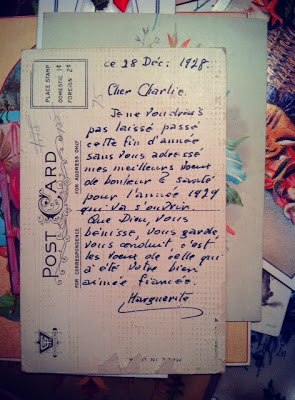 PLACE STAMP
DOMESTIC 1¢
FOREIGN 2¢
POST CARD
FOR ADDRESS ONLY
FOR CORRESPONDENCE
ce 28 Déc. 1928.
Cher Charlie.
Je ne voudrais
pas laissé passé
cette fin d'année
sans vous adressé
mes meilleurs voeux
de bonheur & santé
pour l'année 1929
qui va s'ouvrir.
Que Dieu, vous
bénisse, vous garde,
vous conduit, c'est
les voeux de celle qui
à été votre bien
aimée fiancée.
Marguerite
MADE IN U.S.A.